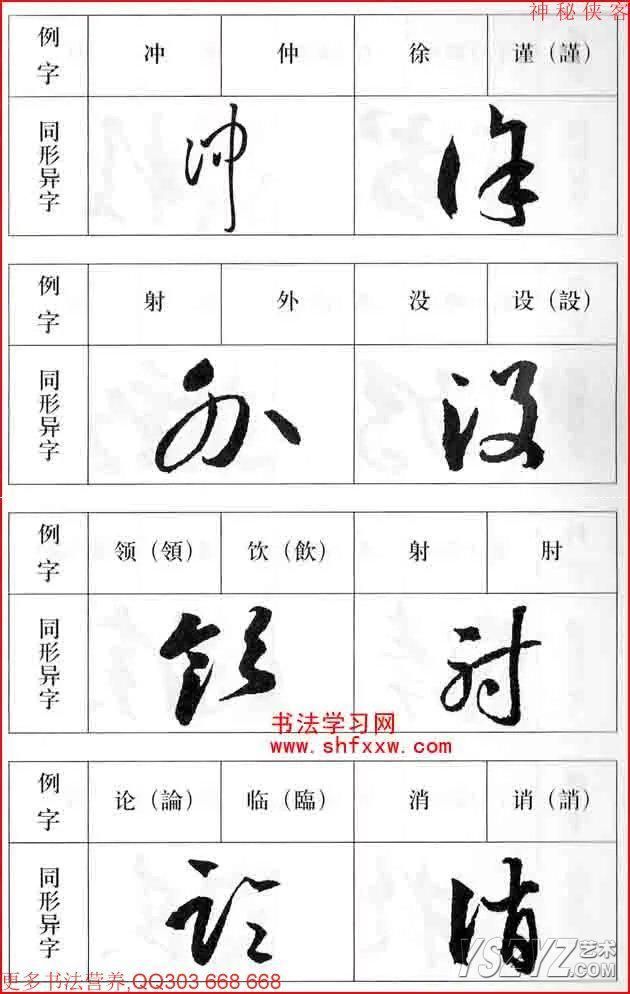 神秘侠客
例字 冲 仲 徐 谨（謹）
同形异字
例字 射 外 没 设（設）
同形异字
例字 领（領） 饮（飲） 射 肘
同形异字
书法学习网
www.shfxxw.com
例字 论（論） 临（臨） 消 诮（誚）
同形异字
YSZYZ艺术
.com
更多书法营养,QQ303 668 668